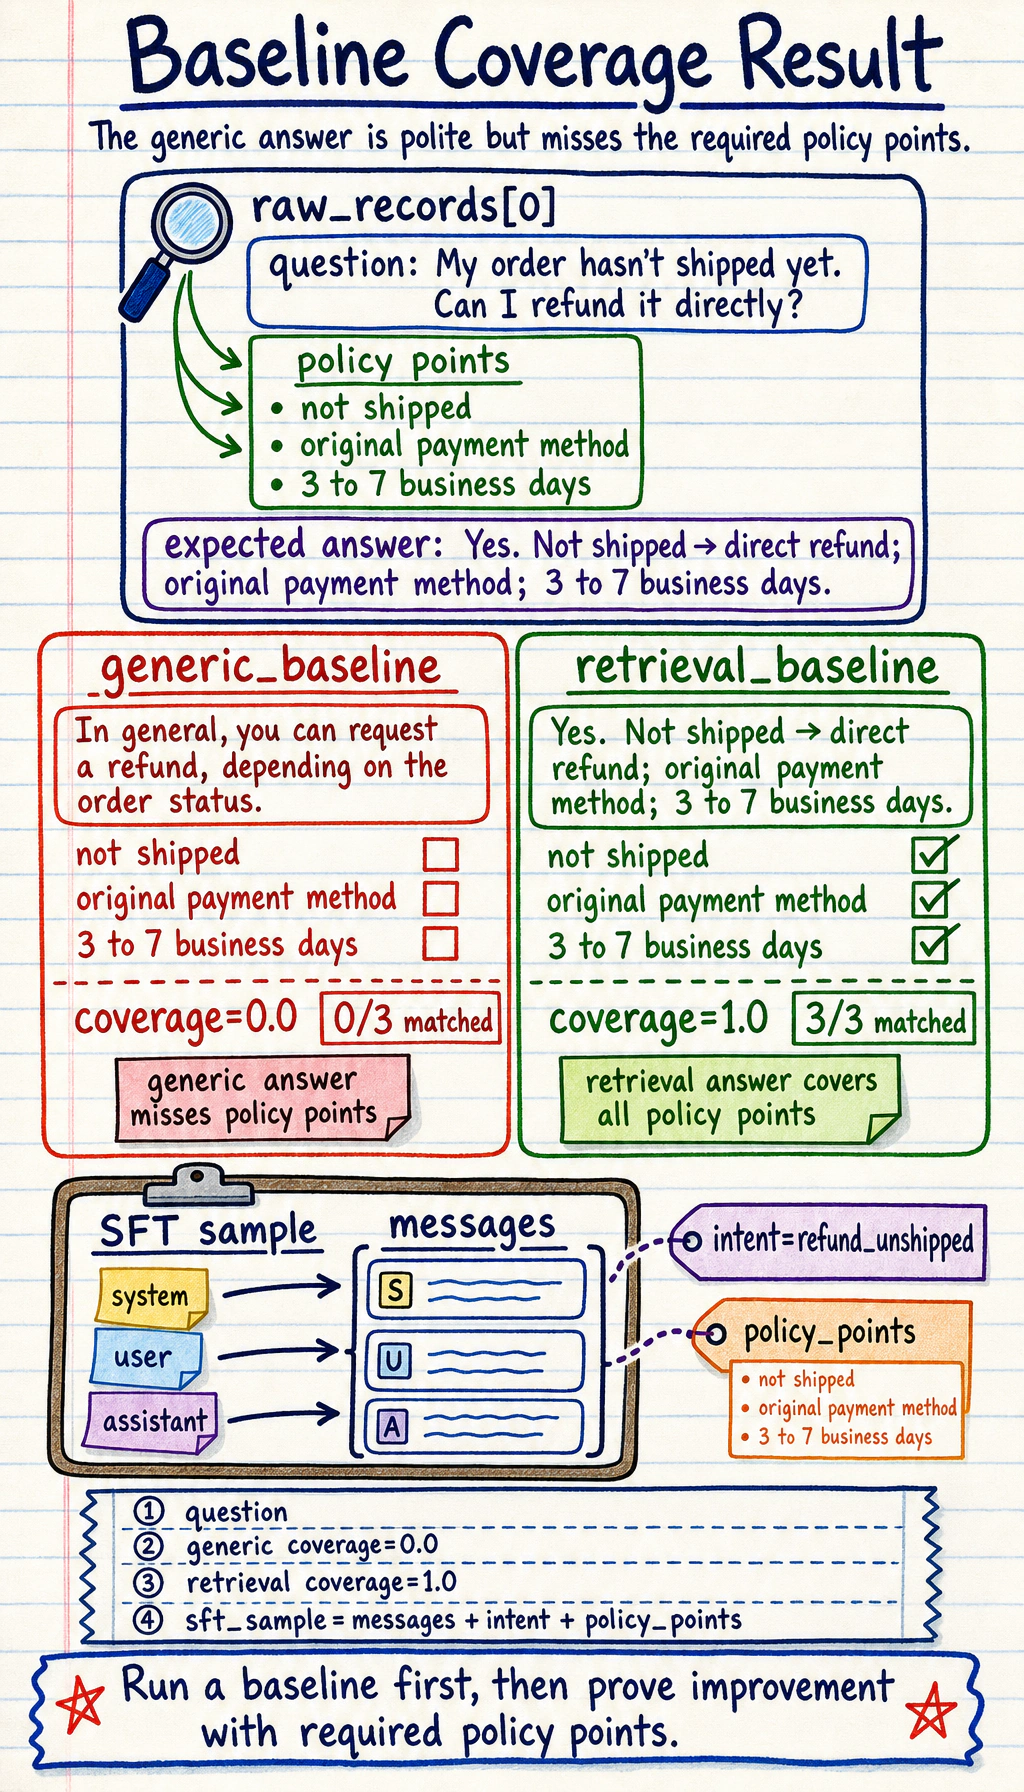 Baseline Coverage Result
The generic answer is polite but misses the required policy points.
raw_records[0]
question: My order hasn't shipped yet.
Can I refund it directly?
policy points
• not shipped
• original payment method
• 3 to 7 business days
expected answer: Yes. Not shipped → direct refund;
original payment method; 3 to 7 business days.
generic_baseline
In general, you can request
a refund, depending on the
order status.
not shipped
original payment method
3 to 7 business days
coverage=0.0 0/3 matched
generic answer
misses policy points
retrieval_baseline
Yes. Not shipped → direct
refund; original payment
method; 3 to 7 business days.
not shipped
original payment method
3 to 7 business days
coverage=1.0 3/3 matched
retrieval answer covers
all policy points
SFT sample
system
user
assistant
messages
S
U
A
intent=refund_unshipped
policy_points
• not shipped
• original payment method
• 3 to 7 business days
① question
② generic coverage=0.0
③ retrieval coverage=1.0
④ sft_sample = messages + intent + policy_points
Run a baseline first, then prove improvement
with required policy points.